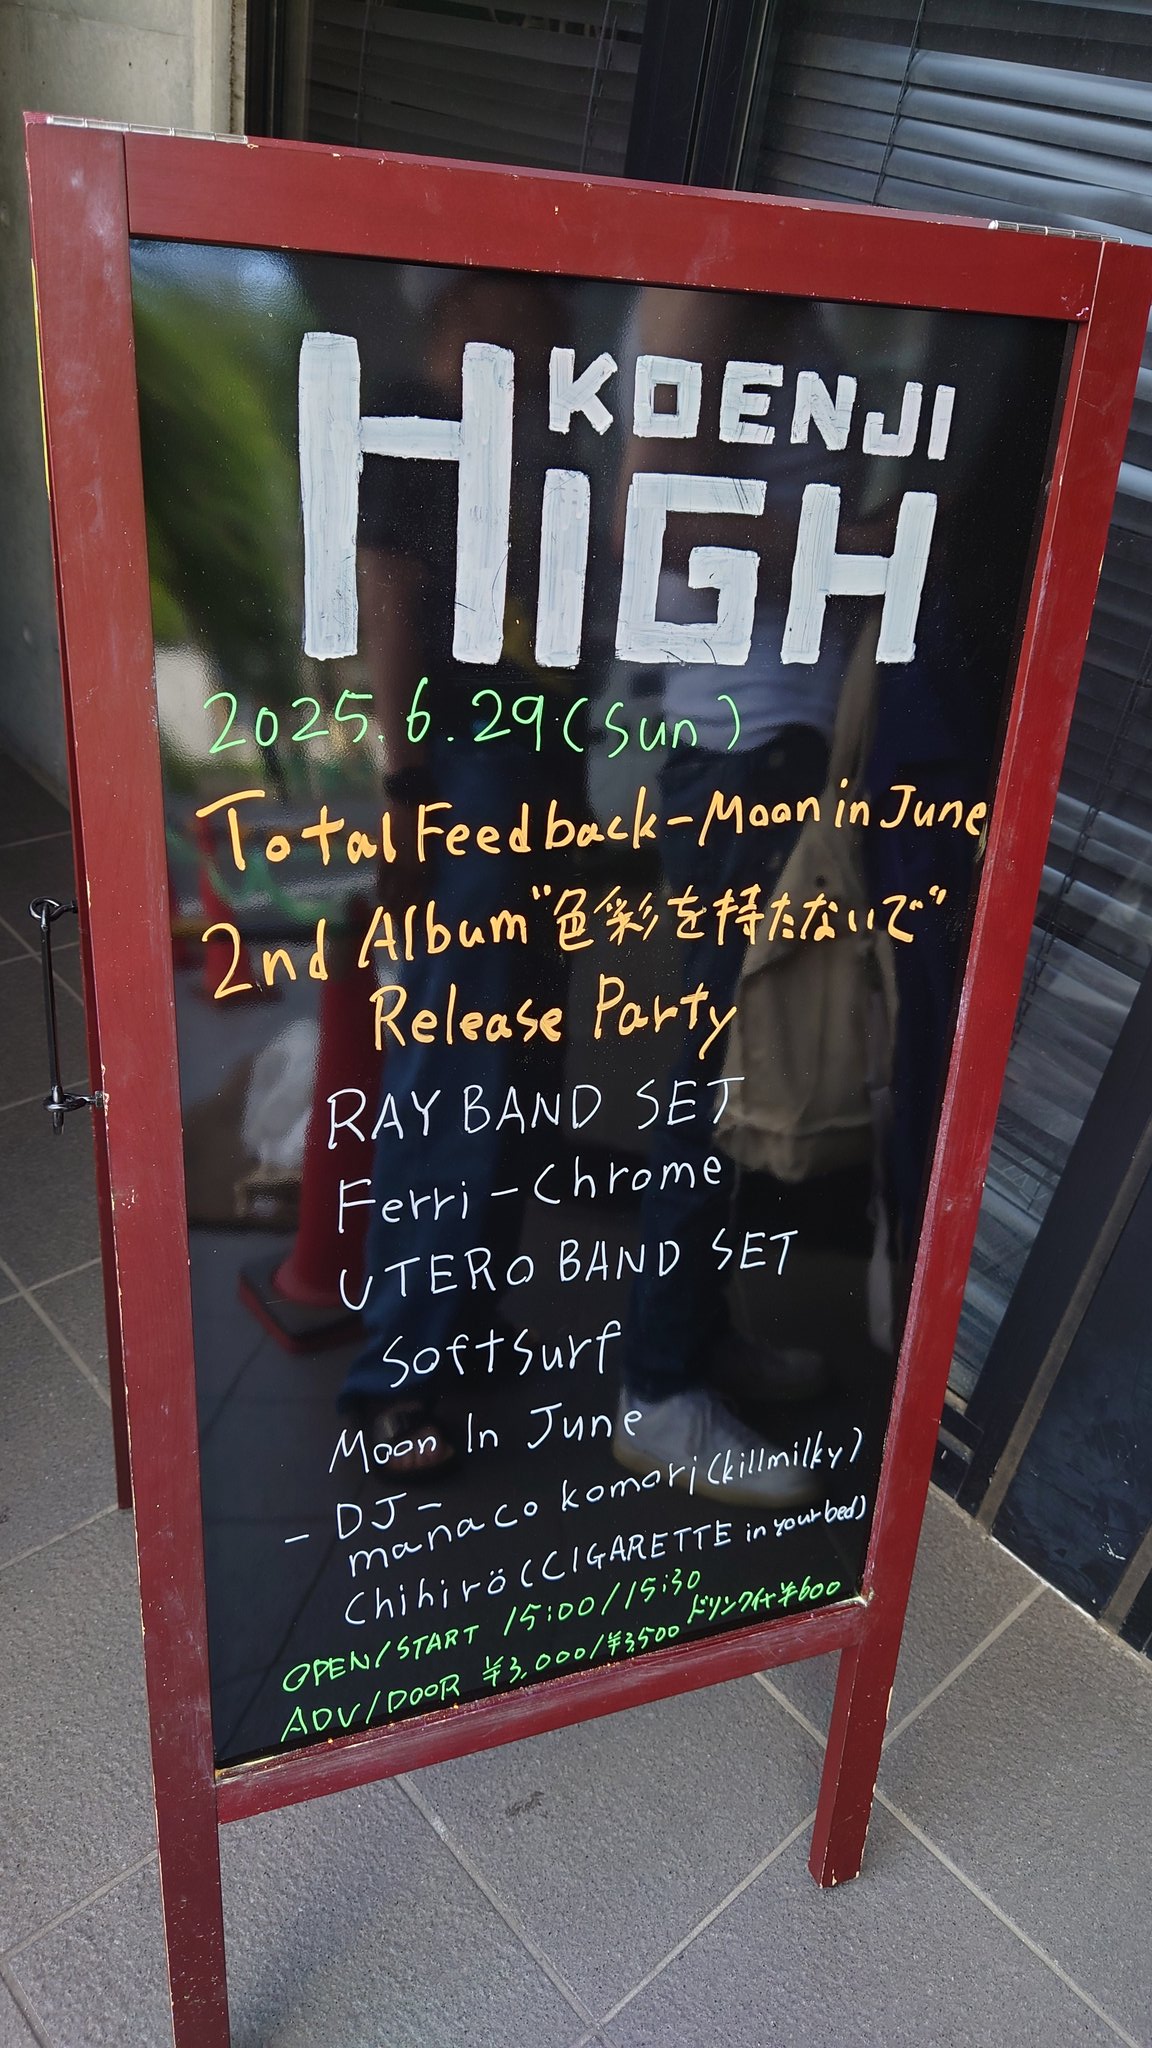 KOENJI
HIGH
2025.6.29(Sun)
Total Feedback-Moon in June
2nd Album "色彩を持たないで"
Release Party
RAY BAND SET
Ferri-Chrome
UTERO BAND SET
Softsurf
Moon In June
- DJ -
manaco komori (killmilky)
Chihirö (CIGARETTE in your bed)
OPEN/START 15:00/15:30
ADV/DOOR ¥3,000/¥3,500 ドリンク代¥600